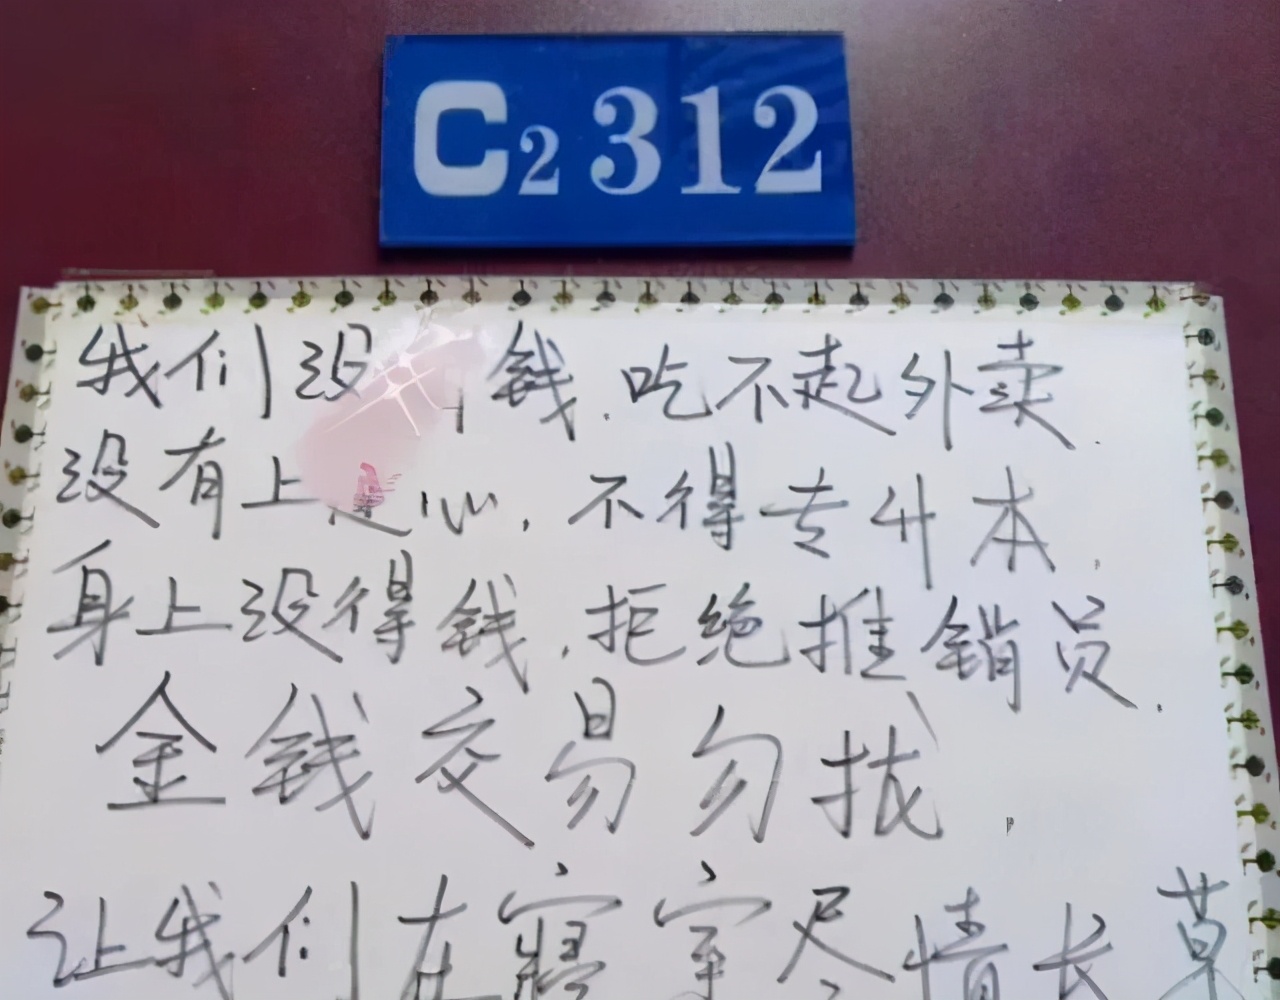 C2 312
我们没 钱.吃不起外卖.
没有上进心,不得专升本.
身上没得钱.拒绝推销员.
金钱交易勿扰
让我们在寝室尽情长草